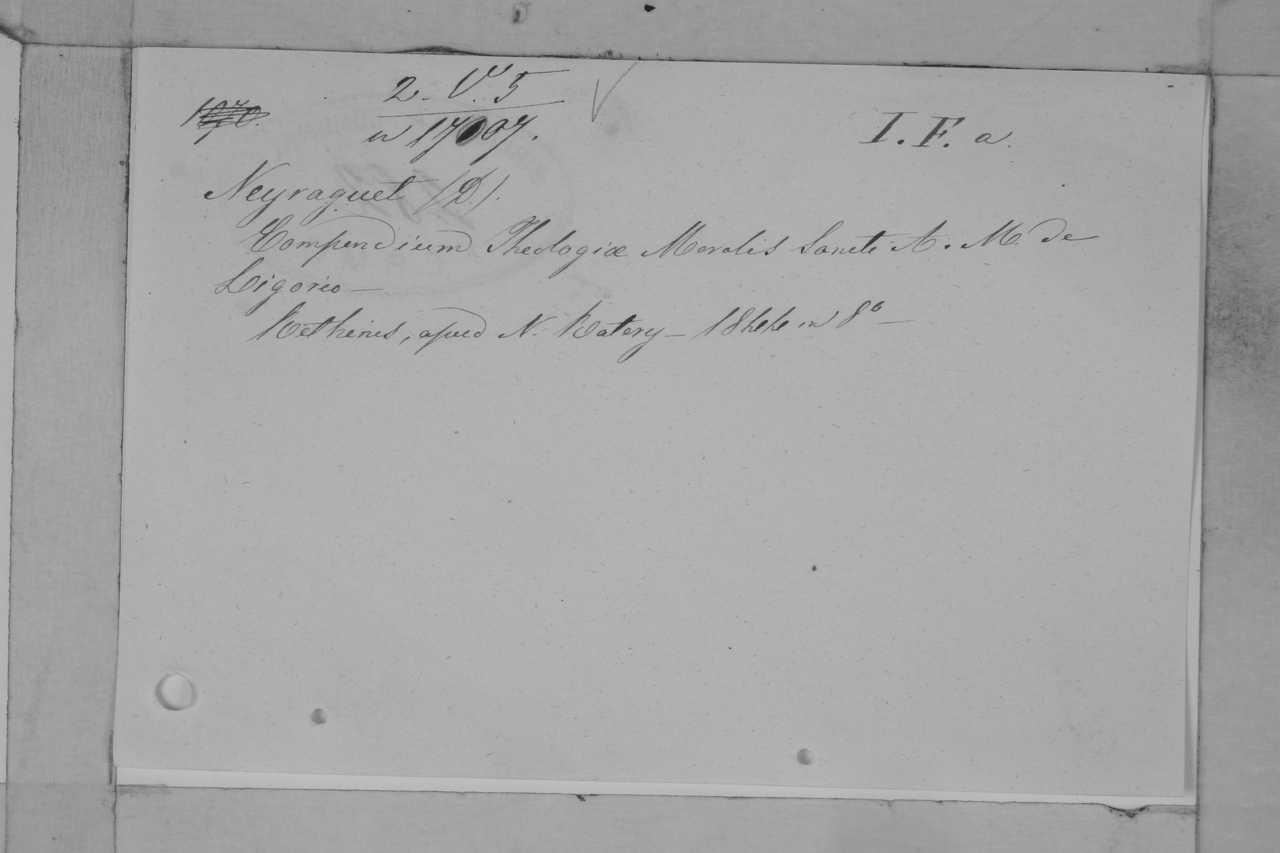 2. V. 5
I. F. a.
Neyraguet (D).
Compendium Theologiæ Moralis Sancti A. M. de
Ligorio —
Ruthenis, apud N. Ratery — 1844 in 8º —